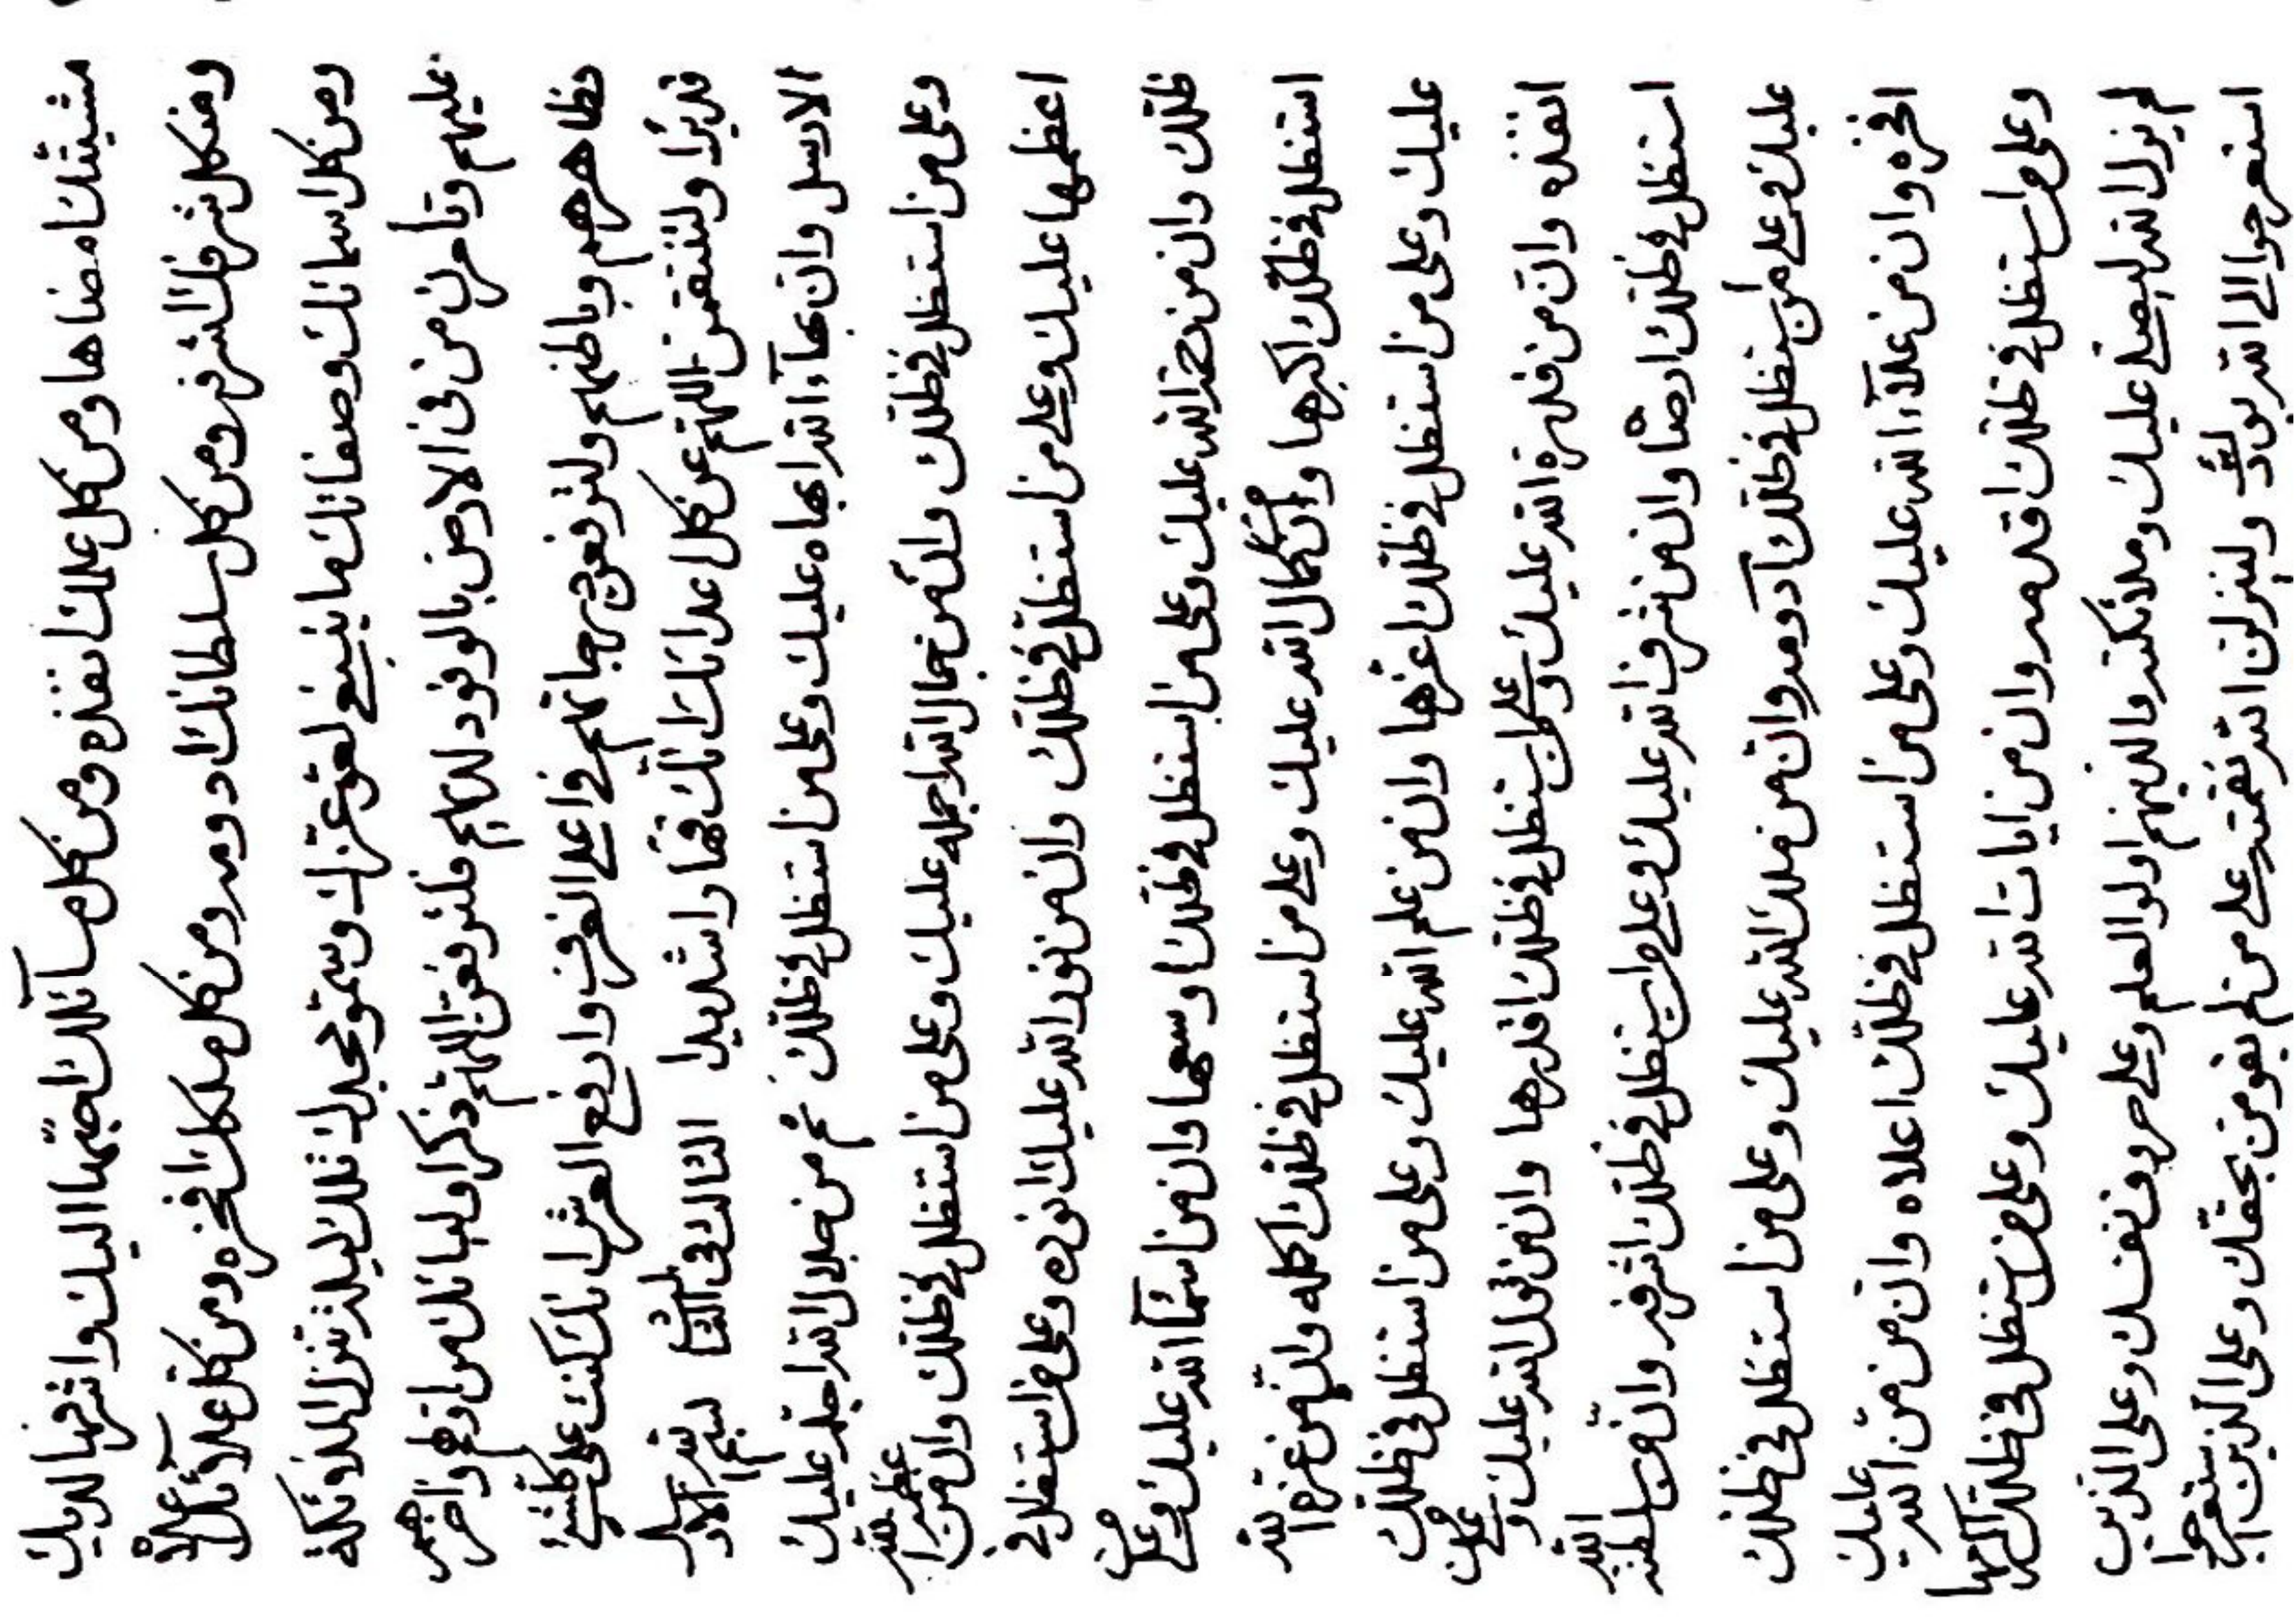 مشيتك امضاها ومن كل علمك انفذه ومن كل مسآئلك احبّها اليك واشرفها لديك
ومن كل شرفك اشرفه ومن كل سلطانك ادومه ومن كل ملكك افخره ومن كل علآئك اعلاه
ومن كل اسمائك وصفاتك ما ينبغي لعلو عزتك وسمو مجدك تلك ليلة تنزل الملائكة
عليهم وتأمرن من في الارض بالوفود لديهم فلترفعن اللهم ذكر اوليائك من اولهم واخرهم
وظاهرهم وباطنهم ولترفعن درجاتهم في اعلى الغرف وارفع العرش انك كنت على كلشئ
قديرا ولتنتقمن اللهم عن كل اعدائك انك قهارا شديدا الثالث في الثالث بسم الله
الارسل وان بهآء الله ابهاه عليك وعلى من استظل في ظلك ثم من جلال الله اجله عليك
وعلى من استظل في ظلك وان من جمال الله اجمله عليك وعلى من استظل في ظلك وان من عظمة الله
اعظمها عليك وعلى من استظل في ظلك وان من نور الله عليك انوره وعلى من استظل في
ظلك وان من رحمة الله عليك وعلى من استظل في ظلك اوسعها وان من اسمآء الله عليك وعلى من
استظل في ظلك اكبرها وان كمال الله عليك وعلى من استظل في ظلك اكمله وان من عزة الله
عليك وعلى من استظل في ظلك اعزها وان من علم الله عليك وعلى من استظل في ظلك
انفذه وان من قدرة الله عليك وعلى من استظل في ظلك اقدرها وان من قول الله عليك وعلى من
استظل في ظلك ارضاه وان من شرف الله عليك وعلى من استظل في ظلك اشرفه وان من سلطنة الله
عليك وعلى من استظل في ظلك ادومه وان من ملك الله عليك وعلى من استظل في ظلك
افخره وان من علآء الله عليك وعلى من استظل في ظلك اعلاه وان من منّ الله عليك
وعلى من استظل في ظلك اقدمه وان من ايات الله عليك وعلى من استظل في ظلك
لم يزل الله ليصلي عليك وملائكته والذينهم اولوا العلم وعلى حروف نفسك وعلى الذين
استعرجوا الى الله ولينزلن الله نقمته على من لم يقومن بحقك وعلى الذين